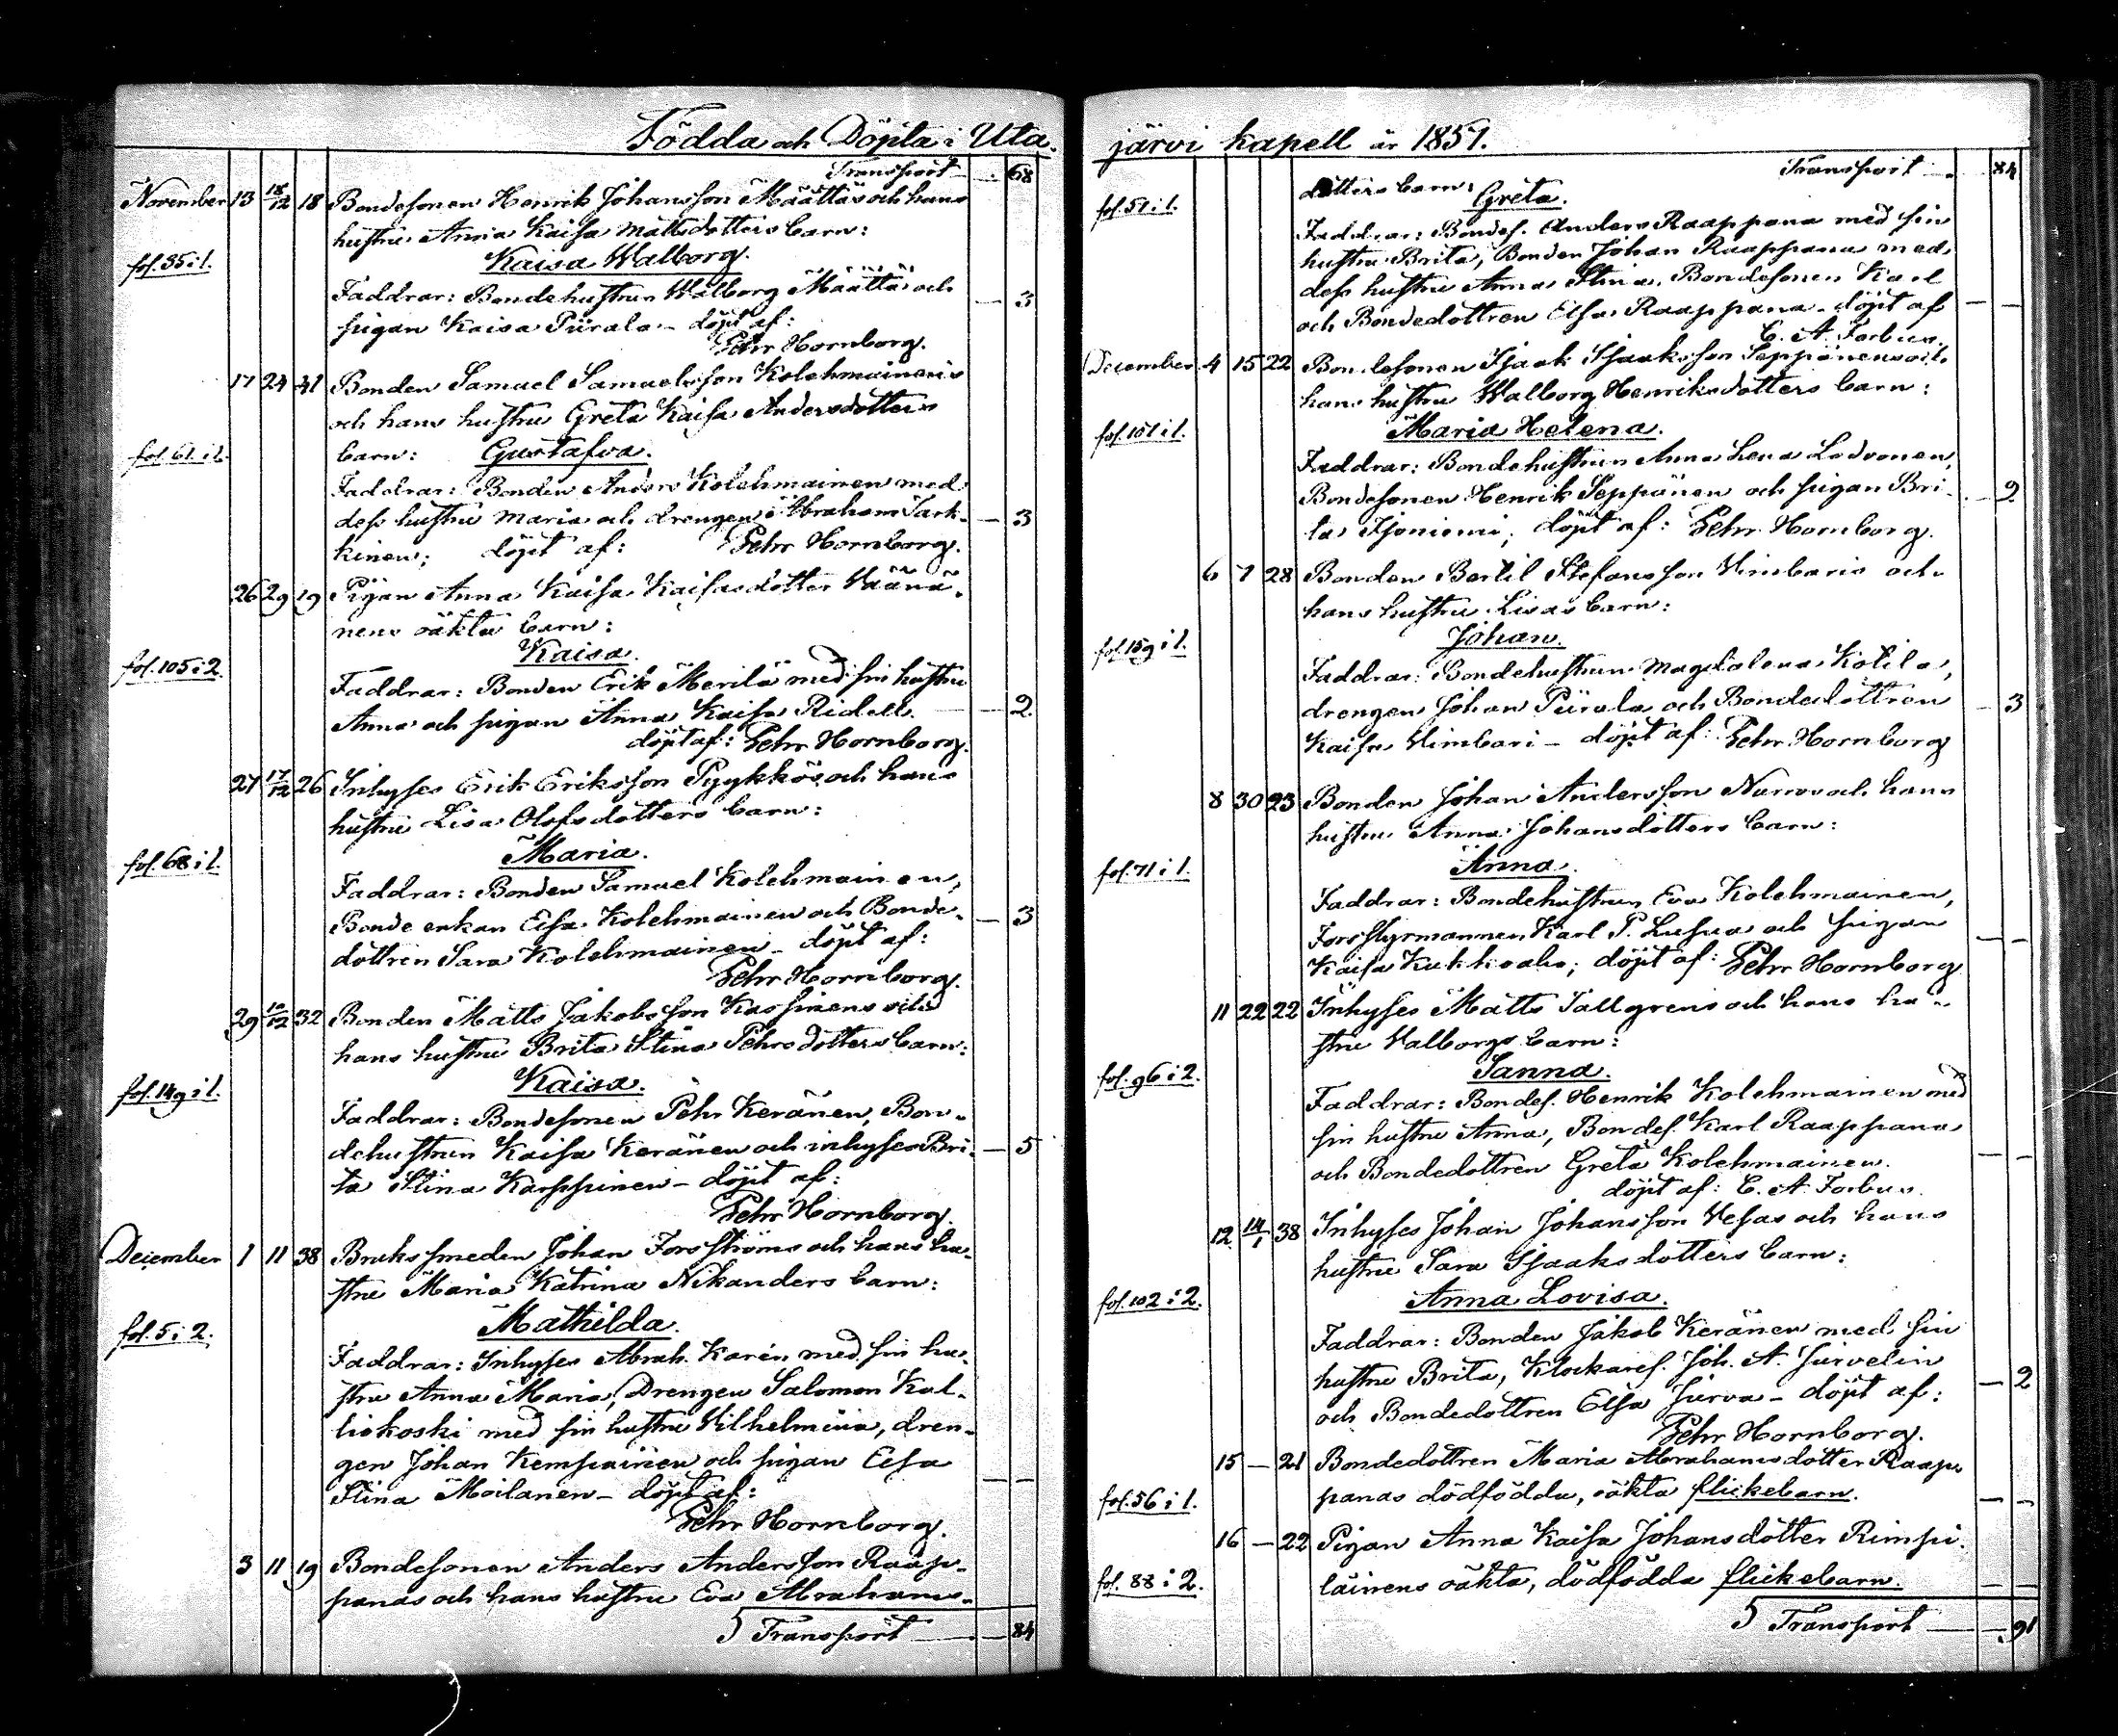 Födda och Döpta i Uta-
Transport — 68
November 13 18/12 18 Bondesonen Henrik Johansson Määttäs och hans
hustru Anna Kaisa Mattsdotters barn:
fol. 35 i 1. Kaisa Walborg.
Faddrar: Bondehustrun Walborg Määttä och — 3
pigan Kaisa Piirala - döpt af:
Pehr Hornborg.
17 24 41 Bonden Samuel Samuelsson Kolehmainens
och hans hustru Greta Kaisa Andersdotters
fol. 61 i 1. barn: Gustafva.
Faddrar: Bonden Anders Kolehmainen med
dess hustru Maria och drengen Abraham Tark- — 3
kinen; döpt af: Pehr Hornborg.
26 29 19 Pigan Anna Kaisa Kaisasdotter Väänä-
nens oäkta barn:
fol. 105 i 2. Kaisa.
Faddrar: Bonden Erik Merilä med sin hustru
Anna och pigan Anna Kaisa Ridell. — 2
döpt af: Pehr Hornborg.
27 17/12 26 Inhyses Erik Eriksson Pyykkös och hans
hustru Lisa Olofsdotters barn:
fol. 68 i 1. Maria.
Faddrar: Bonden Samuel Kolehmainen,
Bonde enkan Elsa Kolehmainen och Bonde- — 3
dottren Sara Kolehmainen - döpt af:
Pehr Hornborg.
29 10/12 32 Bonden Matts Jakobsson Karppinens och
hans hustru Brita Stina Pehrsdotters barn:
fol. 149 i 1. Kaisa.
Faddrar: Bondesonen Pehr Keränen, Bon-
dehustrun Kaisa Keränen och inhyses Bri- — 5
ta Stina Karppinen - döpt af:
Pehr Hornborg.
December 1 11 38 Brukssmeden Johan Forsströms och hans hu-
stru Maria Katrina Nikanders barn:
fol. 5 i 2. Mathilda.
Faddrar: Inhyses Abrah. Karén med sin hu-
stru Anna Maria, Drengen Salomon Kal-
liokoski med sin hustru Wilhelmina, dren-
gen Johan Kempainen och pigan Elsa
Stina Moilanen - döpt af: — —
Pehr Hornborg.
3 11 19 Bondesonen Anders Andersson Raap-
panas och hans hustru Eva Abrahams-
5 Transport — 84
järvi kapell år 1857.
Transport — 84
fol. 51 i 1. dotters barn: Greta.
Faddrar: Bondes. Anders Raappana med sin
hustru Brita, Bonden Johan Raappana med
dess hustru Anna Stina, Bondesonen Karl
och Bondedottren Elsa Raappana - döpt af — —
C. A. Forbus.
December 4 15 22 Bondesonen Isaak Isaaksson Seppänens och
hans hustru Walborg Henriksdotters barn:
fol. 101 i 1. Maria Helena.
Faddrar: Bondehustrun Anna Lena Lodvonen,
Bondesonen Henrik Seppänen och pigan Bri- — 2
ta Isoniemi; döpt af: Pehr Hornborg.
6 7 28 Bonden Bertil Stefansson Vimbaris och
hans hustru Lisas barn:
fol. 159 i 1. Johan.
Faddrar: Bondehustrun Magdalena Kotila,
drengen Johan Piirala och Bondedottren — 3
Kaisa Vimbari - döpt af: Pehr Hornborg
8 30 23 Bonden Johan Andersson Nurros och hans
hustru Anna Johansdotters barn:
fol. 71 i 1. Anna.
Faddrar: Bondehustrun Eva Kolehmainen,
Forsstyrmannen Karl P. Lusua och pigan — —
Kaisa Kukkoaho; döpt af: Pehr Hornborg
11 22 22 Inhyses Matts Tallgrens och hans hu-
stru Walborgs barn:
fol. 96 i 2. Sanna.
Faddrar: Bondes. Henrik Kolehmainen med
sin hustru Anna, Bondes. Karl Raappana
och Bondedottren Greta Kolehmainen. — —
döpt af: C. A. Forbus.
12 14/1 38 Inhyses Johan Johansson Vesas och hans
hustru Sara Isaaksdotters barn:
fol. 102 i 2. Anna Lovisa.
Faddrar: Bonden Jakob Keränen med sin
hustru Brita, Klockares. Joh. A. Jurvelin — 2
och Bondedottren Elsa Jurva - döpt af:
Pehr Hornborg.
15 — 21 Bondedottren Maria Abrahamsdotter Raap-
fol. 56 i 1. panas dödfödda, oäkta flickebarn. — —
16 — 22 Pigan Anna Kaisa Johansdotter Rimpi-
fol. 88 i 2. läinens oäkta, dödfödda flickebarn. — —
5 Transport — 91